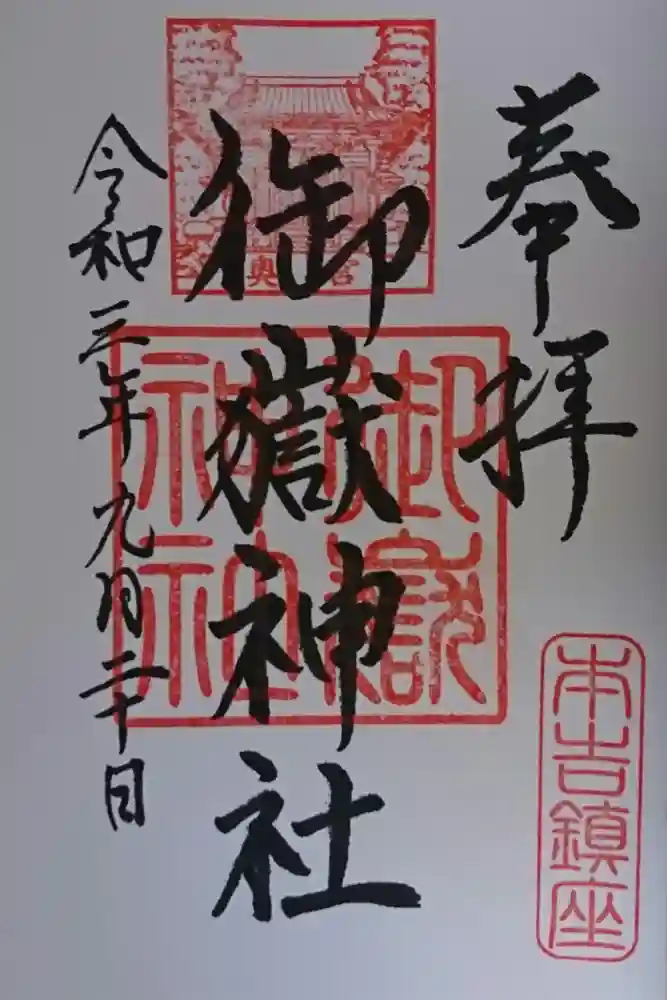 奉拝
本吉鎮座
御嶽神社
奥宮
御嶽神社
令和三年九月二十日